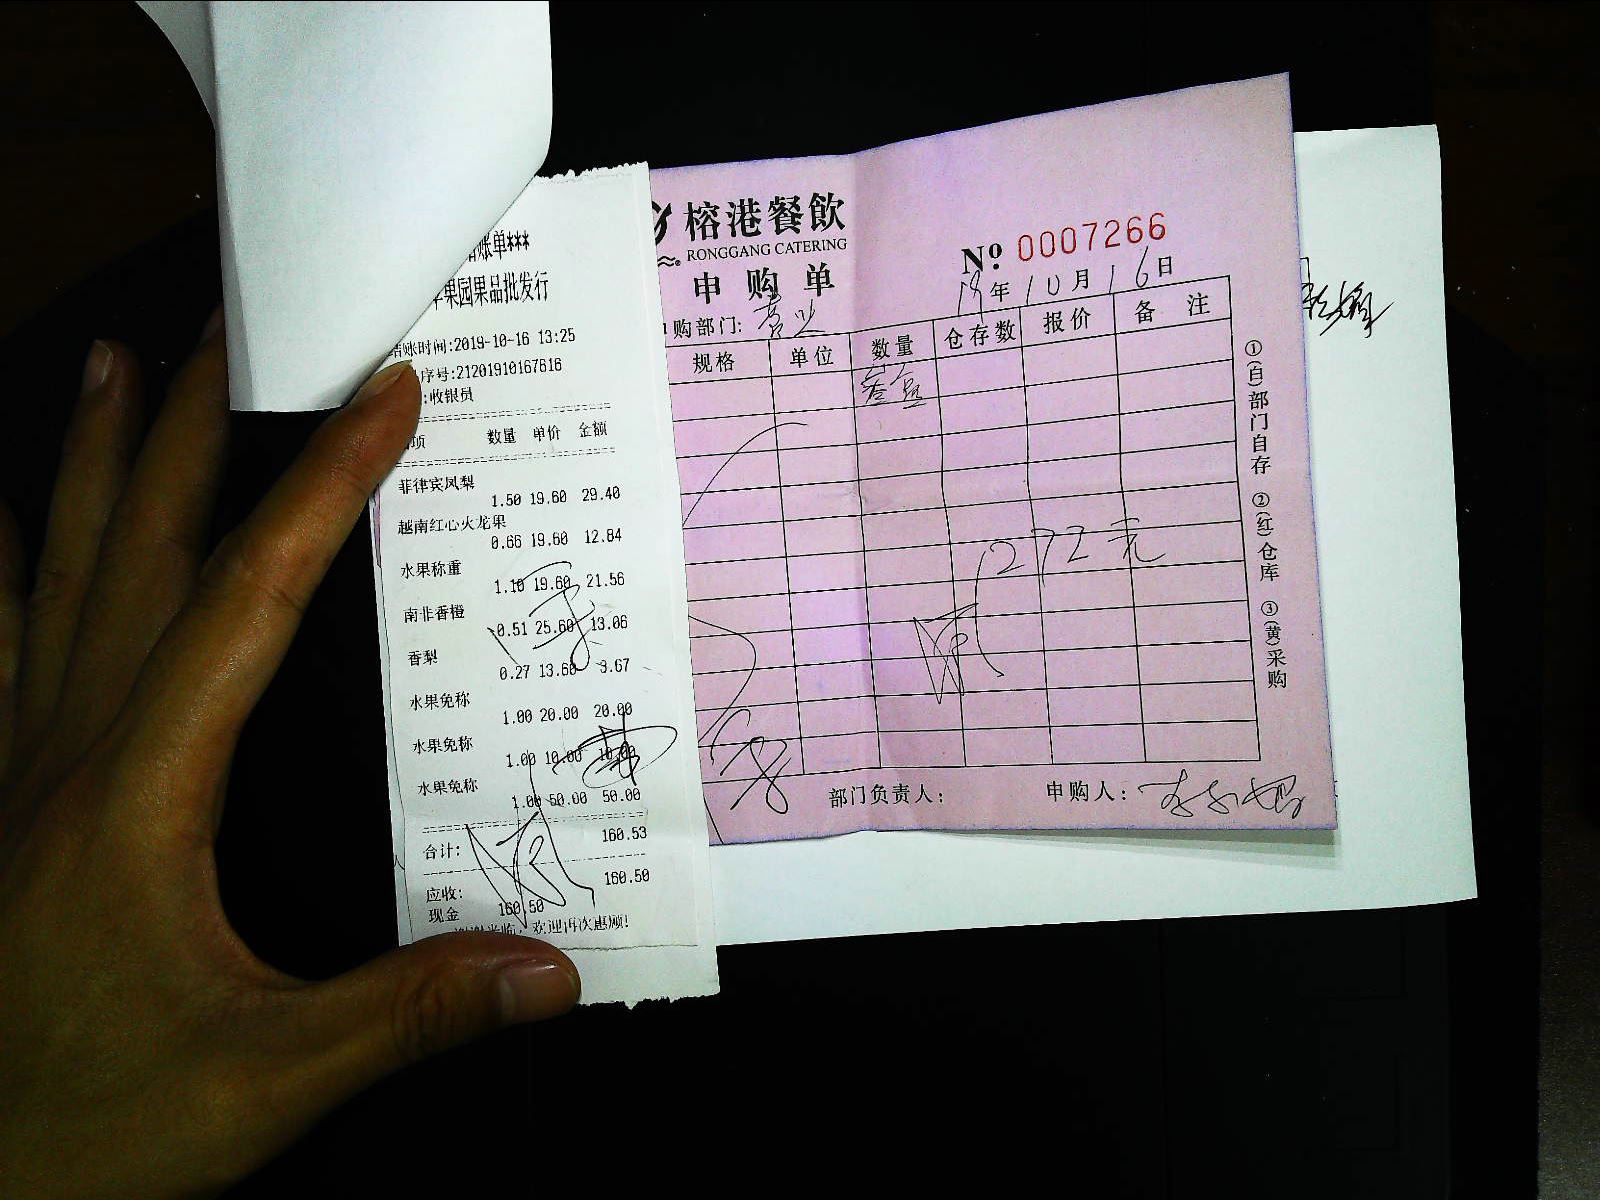 账单***
果园果品批发行
结账时间:2019-10-16 13:25
序号:21201910167616
:收银员
项 数量 单价 金额
菲律宾凤梨
1.50 19.60 29.40
越南红心火龙果
0.66 19.60 12.84
水果称重
1.10 19.60 21.56
南非香橙
0.51 25.60 13.06
香梨
0.27 13.60 3.67
水果免称
1.00 20.00 20.00
水果免称
1.00 10.00 10.00
水果免称
1.00 50.00 50.00
合计: 160.53
应收: 160.50
现金 160.50
谢谢光临,欢迎再次惠顾!
榕港餐飲
RONGGANG CATERING
申购单
№ 0007266
19年10月16日
购部门:
规格 单位 数量 仓存数 报价 备注
272元
部门负责人: 申购人:
①(白)部门自存 ②(红)仓库 ③(黄)采购